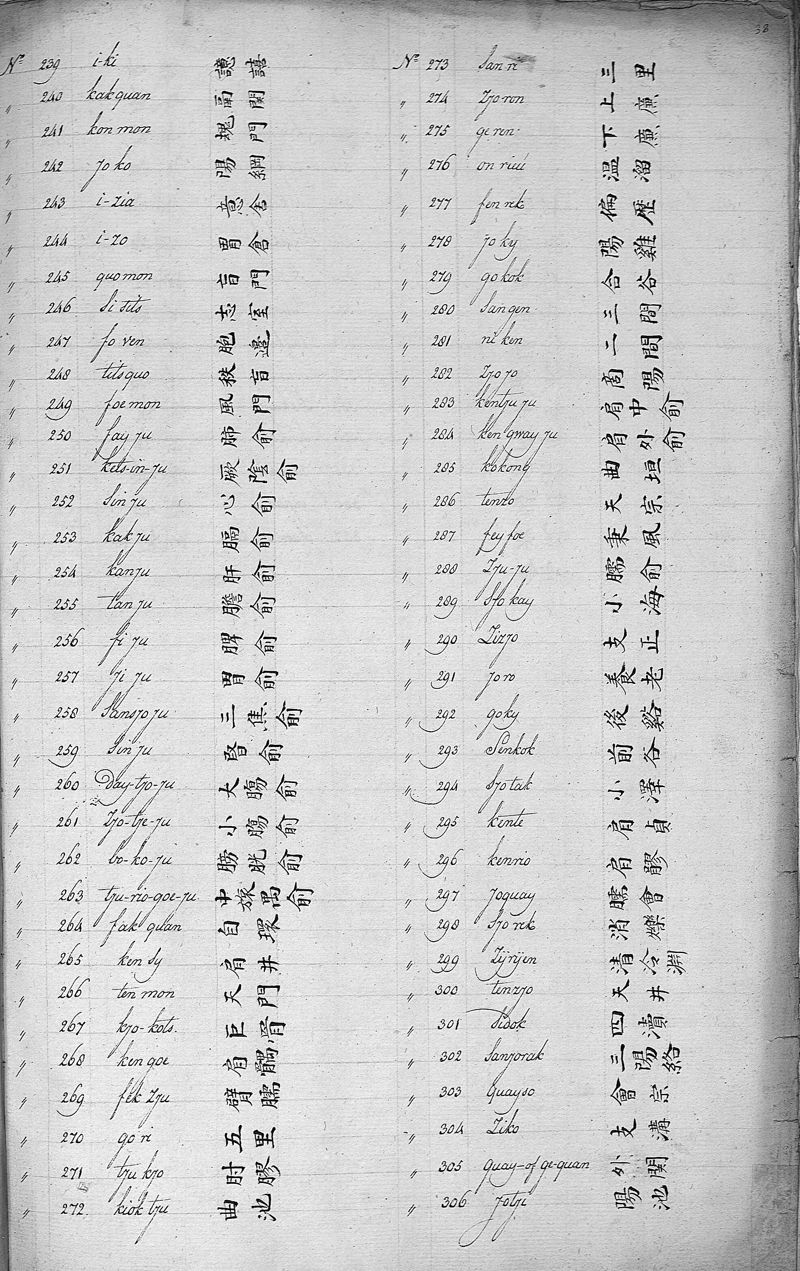 38
Nº 239 i-ki 譩譆
" 240 kakquan 鬲關
" 241 kon mon 魂門
" 242 jo ko 陽綱
" 243 i-zia 意舍
" 244 i-zo 胃倉
" 245 quomon 肓門
" 246 si sits 志室
" 247 fo ven 胞邉
" 248 titsquo 秩肓
" 249 foemon 風門
" 250 fay ju 肺俞
" 251 kets-in-ju 厥陰俞
" 252 sin ju 心俞
" 253 kak ju 膈俞
" 254 kanju 肝俞
" 255 tan ju 膽俞
" 256 fi ju 脾俞
" 257 ji ju 胃俞
" 258 Sansjo ju 三焦俞
" 259 sin ju 腎俞
" 260 Day-tjo-ju 大腸俞
" 261 Zjo-tje-ju 小腸俞
" 262 bo-ko-ju 膀胱俞
" 263 tzu-rio-goe-ju 中膂俞
" 264 fak quan 白環
" 265 ken sy 肩井
" 266 ten mon 天門
" 267 kjo-kots 巨骨
" 268 ken goe 肩髃
" 269 fek Zju 臂臑
" 270 go ri 五里
" 271 tzu kjo 肘膠
" 272 kiok tzu 曲池
Nº 273 san ri 三里
" 274 Zjo ron 上廉
" 275 ge ren 下廉
" 276 on riuú 温溜
" 277 fen rek 偏歴
" 278 jo ky 陽雞
" 279 go kok 合谷
" 280 san gen 三間
" 281 ni ken 二間
" 282 Zjo jo 商陽
" 283 kentzu ju 肩中俞
" 284 ken gway ju 肩外俞
" 285 kokong 曲垣
" 286 tenzo 天宗
" 287 fey foe 秉風
" 288 Zju-ju 臑俞
" 289 sjo kay 小海
" 290 Zizjo 支正
" 291 jo ro 養老
" 292 goky 後谿
" 293 Senkok 前谷
" 294 sjo tak 小澤
" 295 kente 肩貞
" 296 kenrio 肩髎
" 297 joquay 臑會
" 298 sjo rek 消爍
" 299 Zijrijen 清冷淵
" 300 tenzjo 天井
" 301 sidok 四瀆
" 302 sanjorak 三陽絡
" 303 quayso 會宗
" 304 Ziko 支溝
" 305 quay-of ge-quan 外関
" 306 jotji 陽池